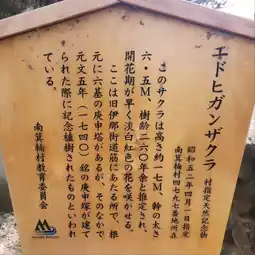 エドヒガンザクラ
村指定天然記念物
昭和五二年四月一日指定
南箕輪村四七九七番地所在
このサクラは高さ約一七M、幹の太さ
六・五M、樹齢二六〇年余と推定され、
開花期が早く淡白紅色の花を咲かせる。
ここは旧伊那街道筋にあたる所で、根
元に六基の庚申塔があるが、そのなかで
元文五年(一七四〇)銘の庚申塔が建て
られた際に記念植樹されたものといわれ
ている。
南箕輪村教育委員会